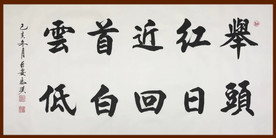 舉頭
紅日
近回
首白
雲低
己亥冬月